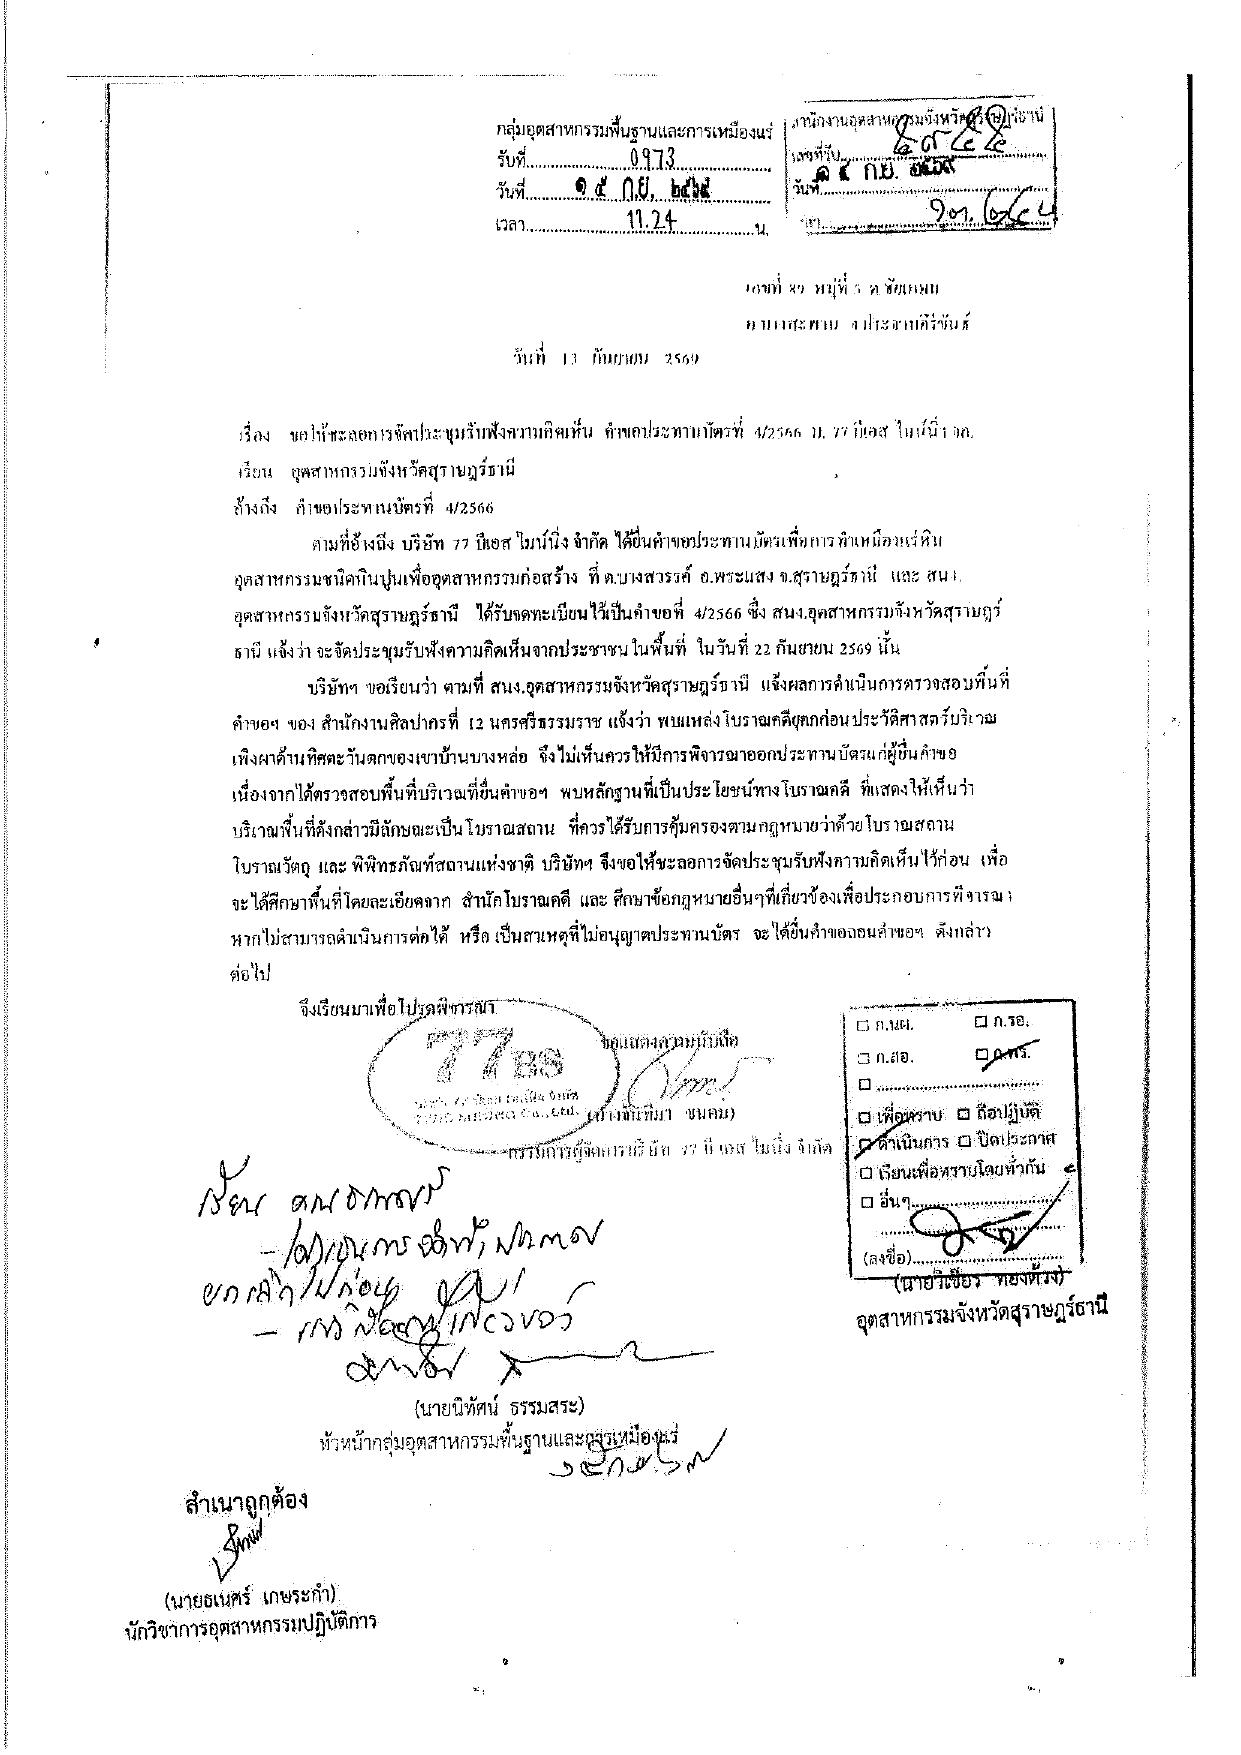 กลุ่มอุตสาหกรรมพื้นฐานและการเหมืองแร่
รับที่ 0973
วันที่ ๑๕ ก.ย. ๒๕๖๙
เวลา 11.24 น.
สำนักงานอุตสาหกรรมจังหวัดสุราษฎร์ธานี
เลขที่รับ
วันที่ ๑๕ ก.ย. ๒๕๖๙
เลขที่ หมู่ที่ ต.ชัยเกษม
อ.บางสะพาน จ.ประจวบคีรีขันธ์
วันที่ 13 กันยายน 2569
เรื่อง ขอให้ชะลอการจัดประชุมรับฟังความคิดเห็น คำขอประทานบัตรที่ 4/2566 บ. 77 บีเอส ไมน์นิ่ง จก.
เรียน อุตสาหกรรมจังหวัดสุราษฎร์ธานี
อ้างถึง คำขอประทานบัตรที่ 4/2566
ตามที่อ้างถึง บริษัท 77 บีเอส ไมน์นิ่ง จำกัด ได้ยื่นคำขอประทานบัตรเพื่อการทำเหมืองแร่หิน
อุตสาหกรรมชนิดหินปูนเพื่ออุตสาหกรรมก่อสร้าง ที่ ต.บางสวรรค์ อ.พระแสง จ.สุราษฎร์ธานี และ สนง.
อุตสาหกรรมจังหวัดสุราษฎร์ธานี ได้รับจดทะเบียนไว้เป็นคำขอที่ 4/2566 ซึ่ง สนง.อุตสาหกรรมจังหวัดสุราษฎร์
ธานี แจ้งว่า จะจัดประชุมรับฟังความคิดเห็นจากประชาชนในพื้นที่ ในวันที่ 22 กันยายน 2569 นั้น
บริษัทฯ ขอเรียนว่า ตามที่ สนง.อุตสาหกรรมจังหวัดสุราษฎร์ธานี แจ้งผลการดำเนินการตรวจสอบพื้นที่
คำขอฯ ของ สำนักงานศิลปากรที่ 12 นครศรีธรรมราช แจ้งว่า พบแหล่งโบราณคดียุคก่อนประวัติศาสตร์บริเวณ
เพิงผาด้านทิศตะวันตกของเขาบ้านบางหล่อ จึงไม่เห็นควรให้มีการพิจารณาออกประทานบัตรแก่ผู้ยื่นคำขอ
เนื่องจากได้ตรวจสอบพื้นที่บริเวณที่ยื่นคำขอฯ พบหลักฐานที่เป็นประโยชน์ทางโบราณคดี ที่แสดงให้เห็นว่า
บริเวณพื้นที่ดังกล่าวมีลักษณะเป็นโบราณสถาน ที่ควรได้รับการคุ้มครองตามกฎหมายว่าด้วยโบราณสถาน
โบราณวัตถุ และ พิพิทธภัณฑ์สถานแห่งชาติ บริษัทฯ จึงขอให้ชะลอการจัดประชุมรับฟังความคิดเห็นไว้ก่อน เพื่อ
จะได้ศึกษาพื้นที่โดยละเอียดจาก สำนักโบราณคดี และ ศึกษาข้อกฎหมายอื่นๆที่เกี่ยวข้องเพื่อประกอบการพิจารณา
หากไม่สามารถดำเนินการต่อได้ หรือ เป็นสาเหตุที่ไม่อนุญาตประทานบัตร จะได้ยื่นคำขอถอนคำขอฯ ดังกล่าว
ต่อไป
จึงเรียนมาเพื่อโปรดพิจารณา
ขอแสดงความนับถือ
77BS
(นางจันทิมา ชนคม)
กรรมการผู้จัดการบริษัท 77 บี เอส ไมนิ่ง จำกัด
□ ก.นผ. □ ก.รอ.
□ ก.สอ. □ ก.พร.
□
□ เพื่อทราบ □ ถือปฏิบัติ
□ ดำเนินการ □ ปิดประกาศ
□ เรียนเพื่อทราบโดยทั่วกัน
□ อื่นๆ
(ลงชื่อ)
(นายวิเชียร ทองด้วง)
อุตสาหกรรมจังหวัดสุราษฎร์ธานี
เรียน
ยกเลิกไปก่อน
(นายนิทัศน์ ธรรมสระ)
หัวหน้ากลุ่มอุตสาหกรรมพื้นฐานและการเหมืองแร่
สำเนาถูกต้อง
(นายธเนศร์ เกษระกำ)
นักวิชาการอุตสาหกรรมปฏิบัติการ